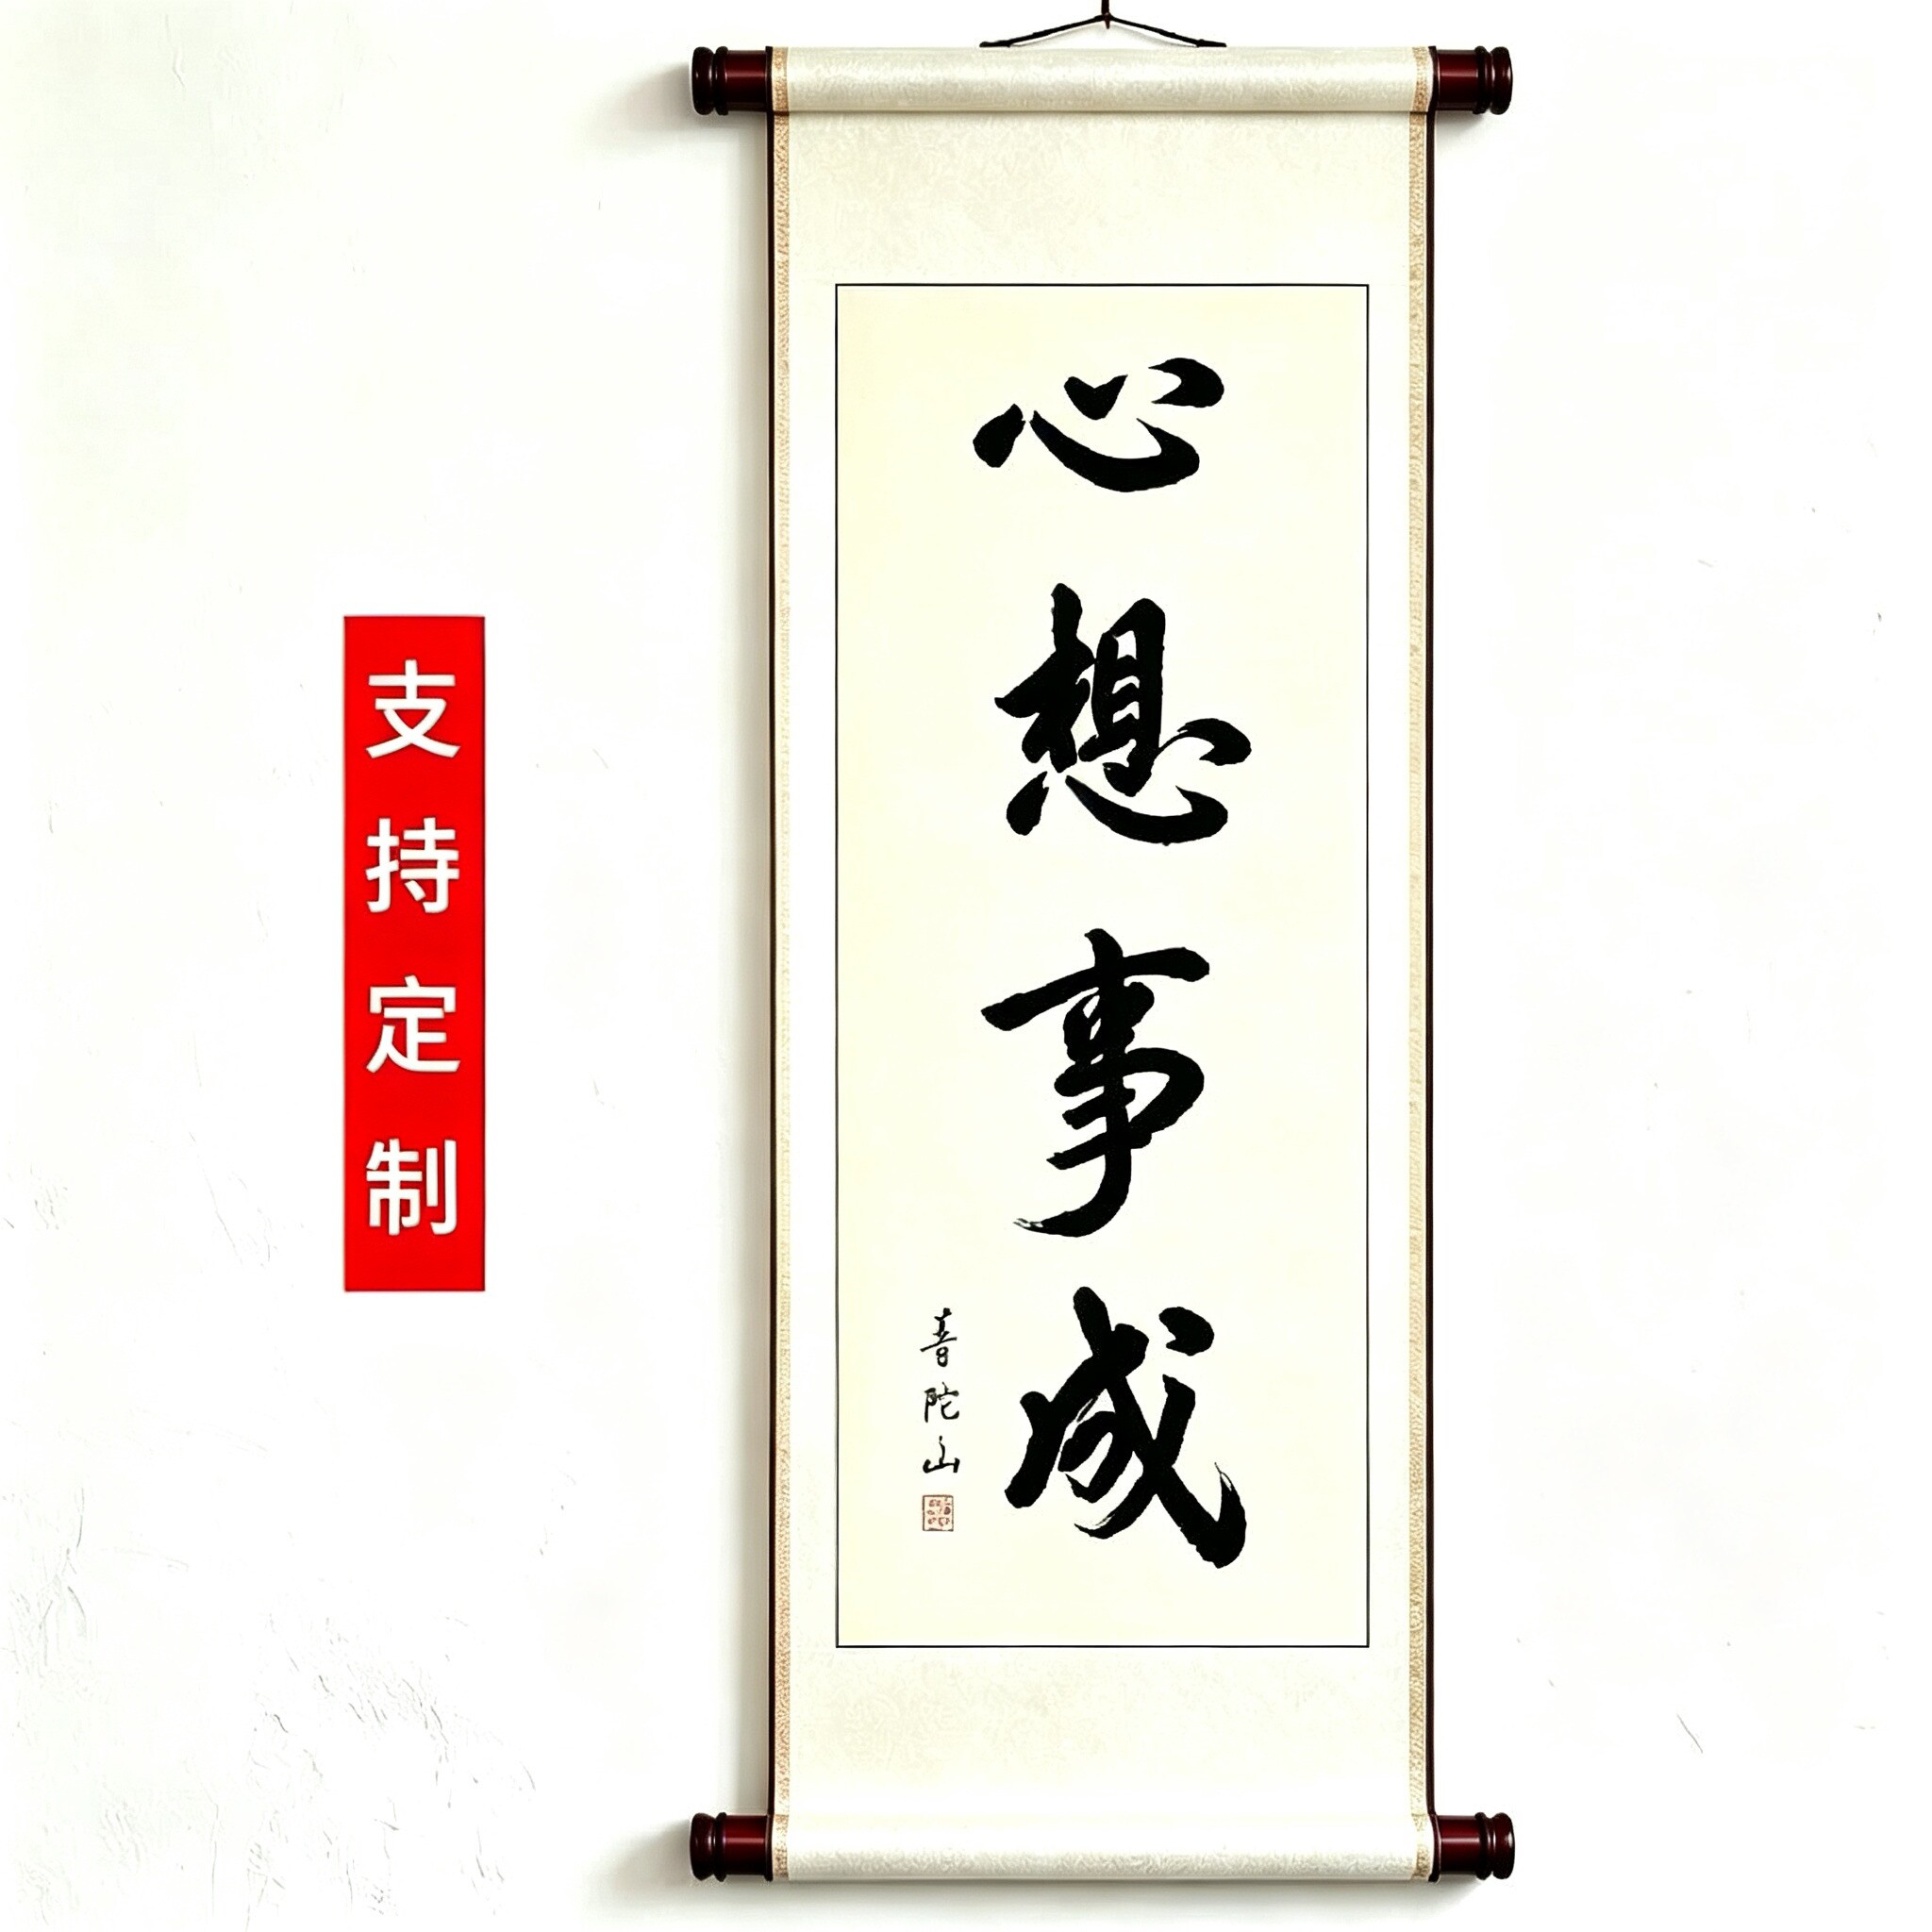 心想事成
普陀山
支持定制